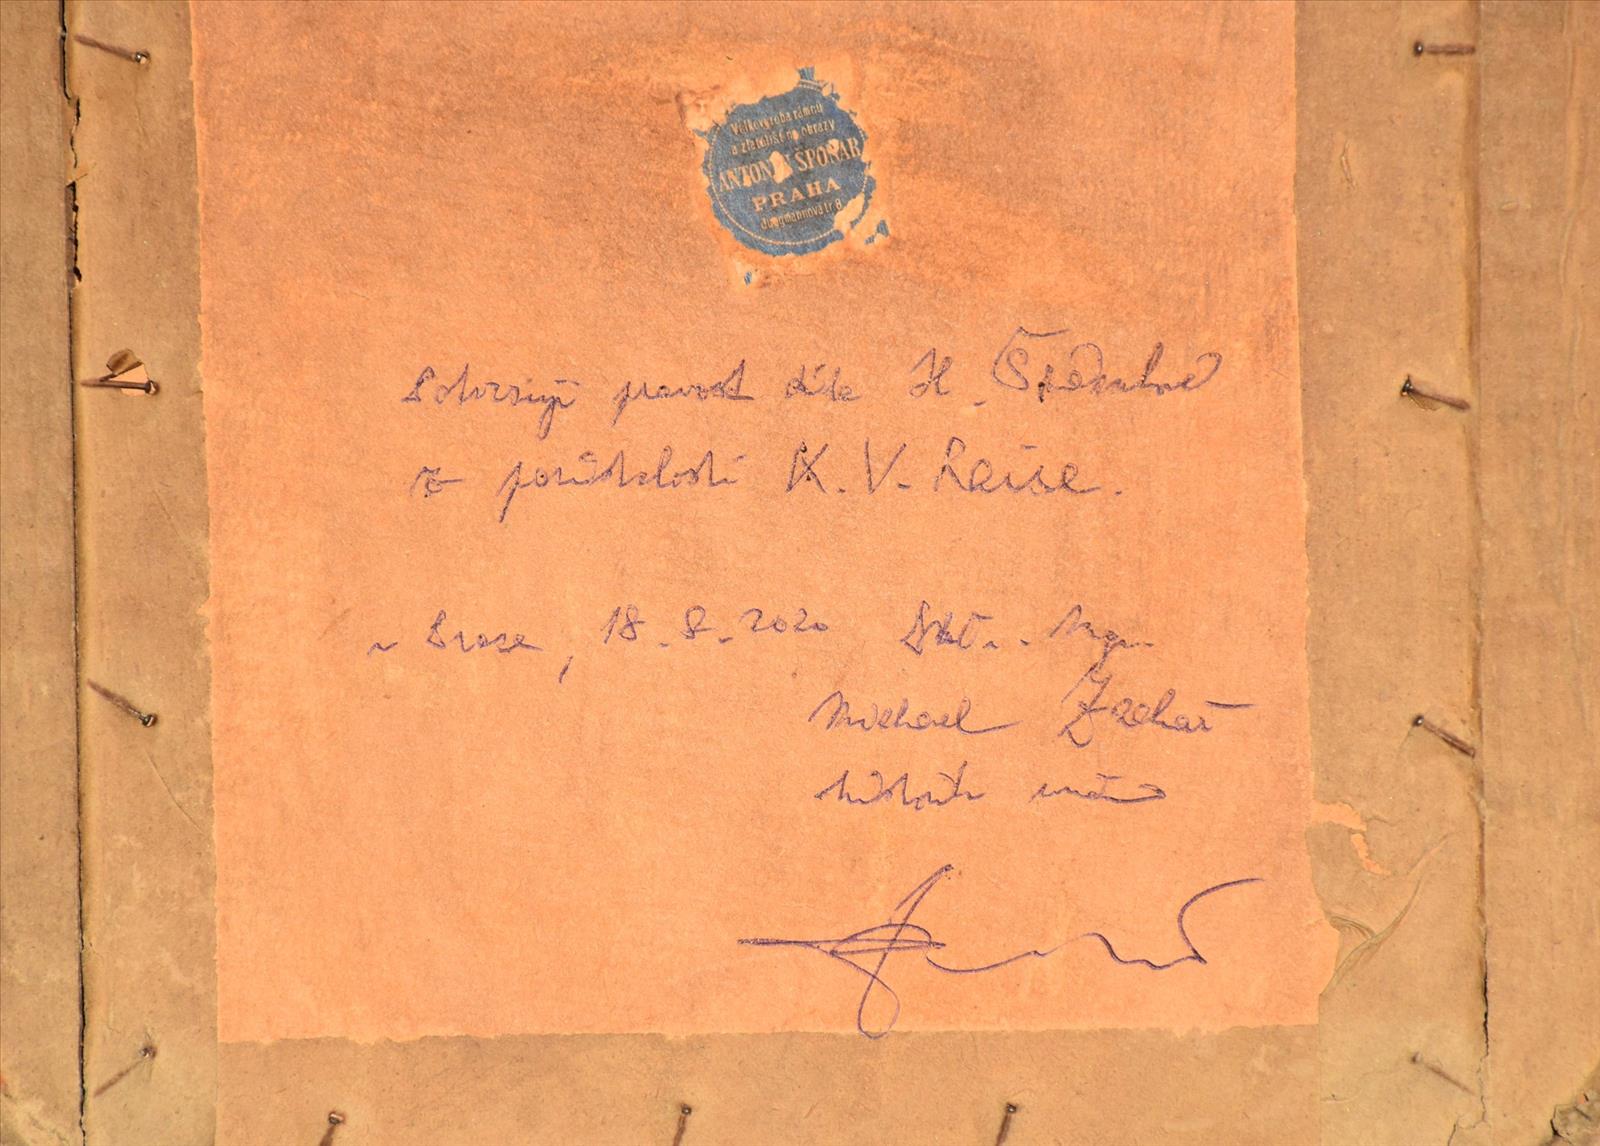 Velkovýroba rámů
a zlatolišt na obrazy
ANTONÍN ŠPONAR
PRAHA
Jungmannova tř. 8
Potvrzuji pravost díla H.
z pozůstalosti K. V. Raise.
v Praze, 18. 8. 2020 Mgr.
Michael Zachař
historik umění